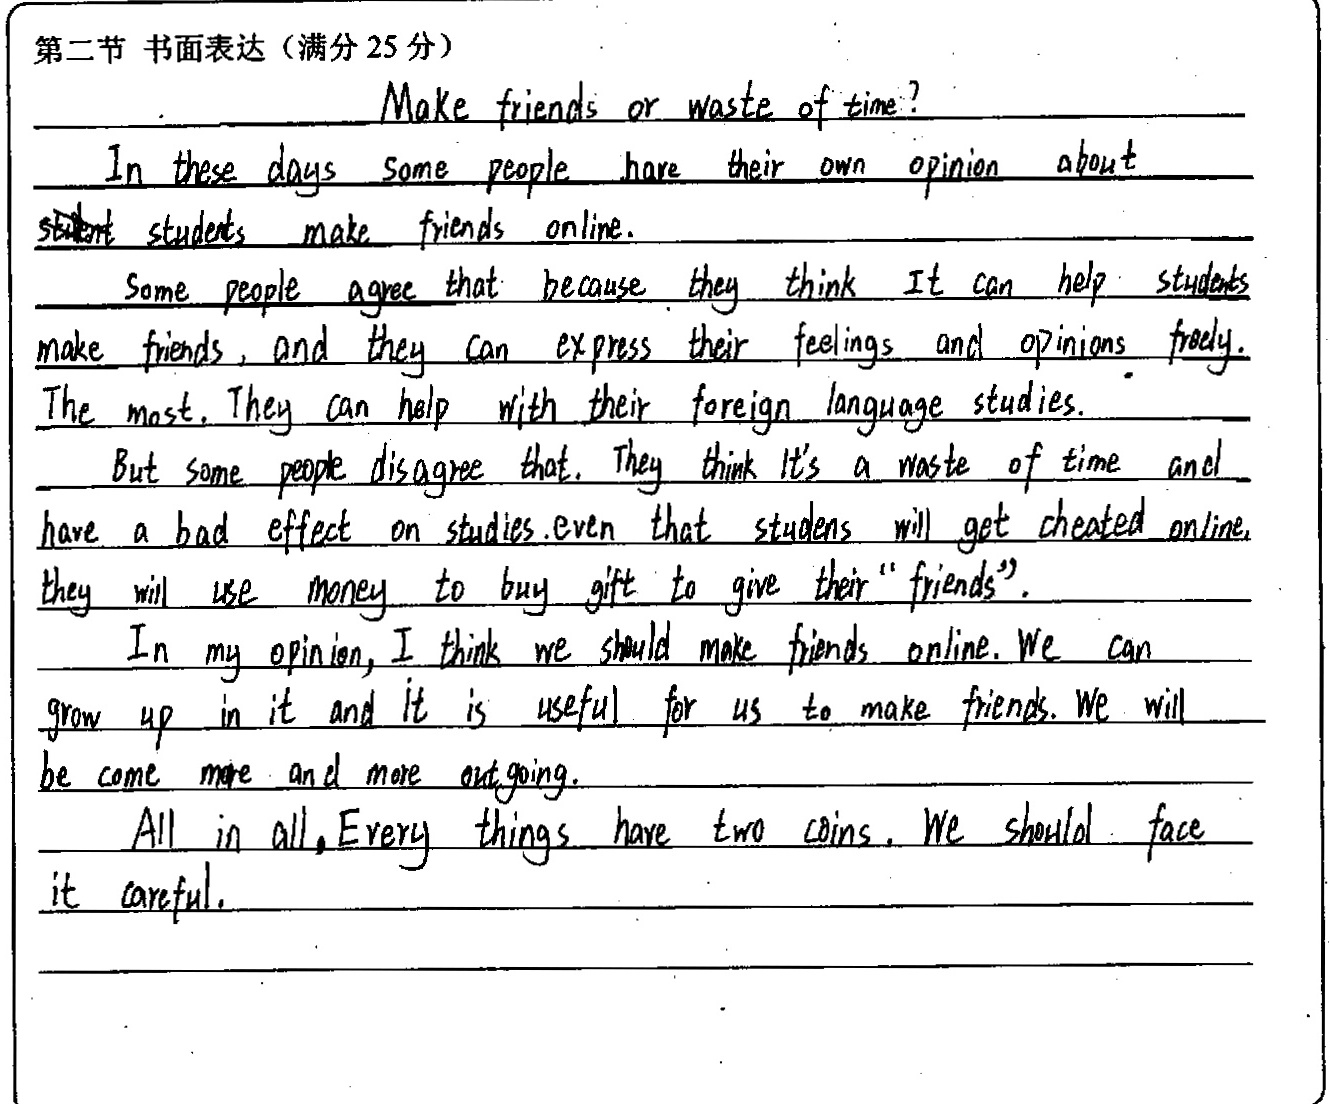 第二节 书面表达（满分 25 分）
Make friends or waste of time?
In these days some people have their own opinion about
students make friends online.
Some people agree that because they think It can help students
make friends, and they can express their feelings and opinions freely.
The most. They can help with their foreign language studies.
But some people disagree that. They think It's a waste of time and
have a bad effect on studies. even that studens will get cheated online,
they will use money to buy gift to give their "friends".
In my opinion, I think we should make friends online. We can
grow up in it and it is useful for us to make friends. We will
be come more and more outgoing.
All in all, Every things have two coins. We should face
it careful.